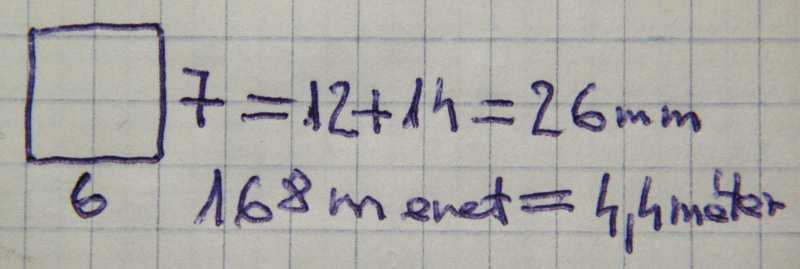 7 = 12 + 14 = 26 mm
6 168 menet = 4,4 méter